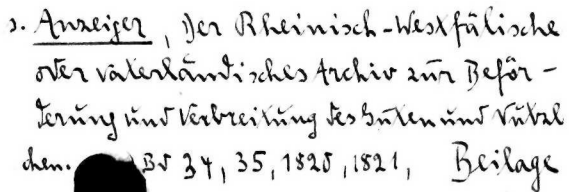 s. Anzeiger, Der Rheinisch-Westfälische
oder vaterländisches Archiv zur Beför-
derung und Verbreitung des Guten und Nützl
chen. Bd 34, 35, 1820, 1821, Beilage